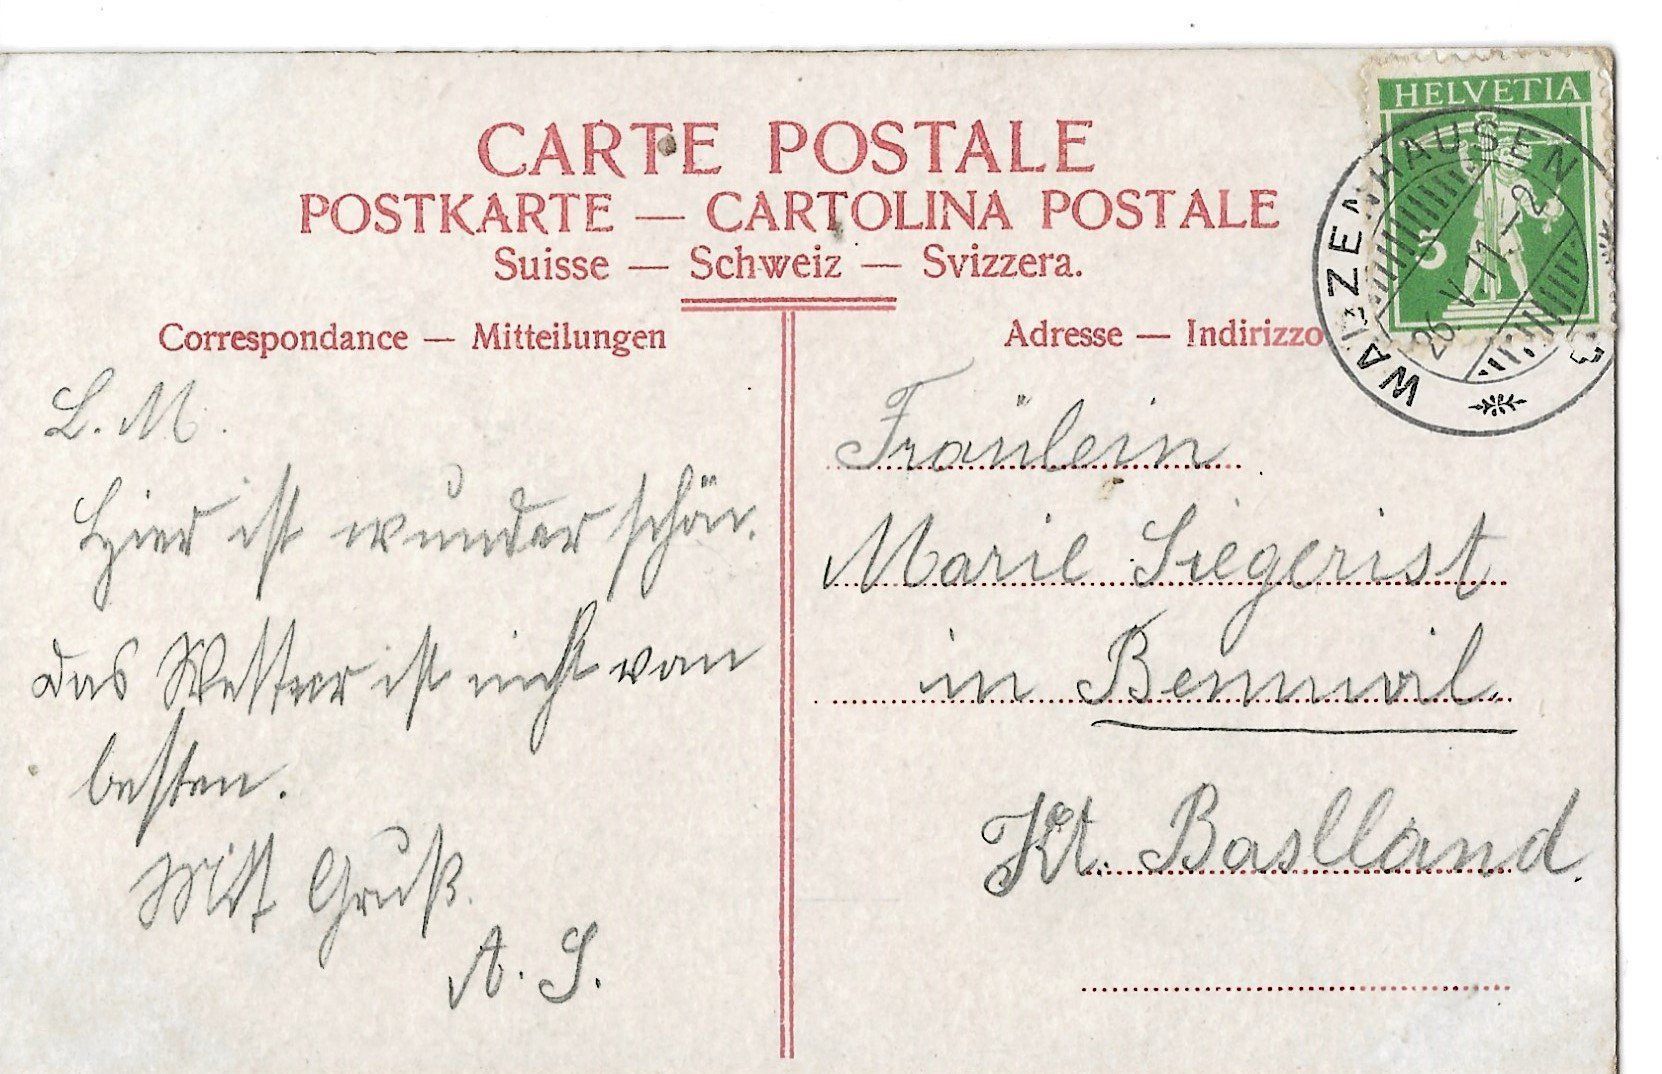 CARTE POSTALE
POSTKARTE — CARTOLINA POSTALE
Suisse — Schweiz — Svizzera.
Correspondance — Mitteilungen
L. M.
Hier ist wunder schön.
das Wetter ist nicht von
besten.
Mit Gruß.
A. S.
HELVETIA
5
WALZENHAUSEN
26. V. 11. – 2
Adresse — Indirizzo
Fräulein
Marie Siegerist
in Bennwil.
Kt. Baslland.